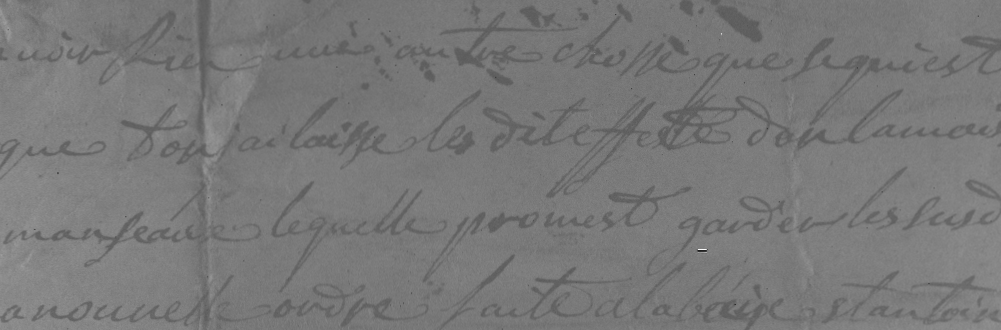 avoir Rien mie autre chosse que se qui est
que Tou jai laisse les dit effecte don lamais
manseau lequelle promest garder les susd
a nouvelle ordre faite a labeie st antoin